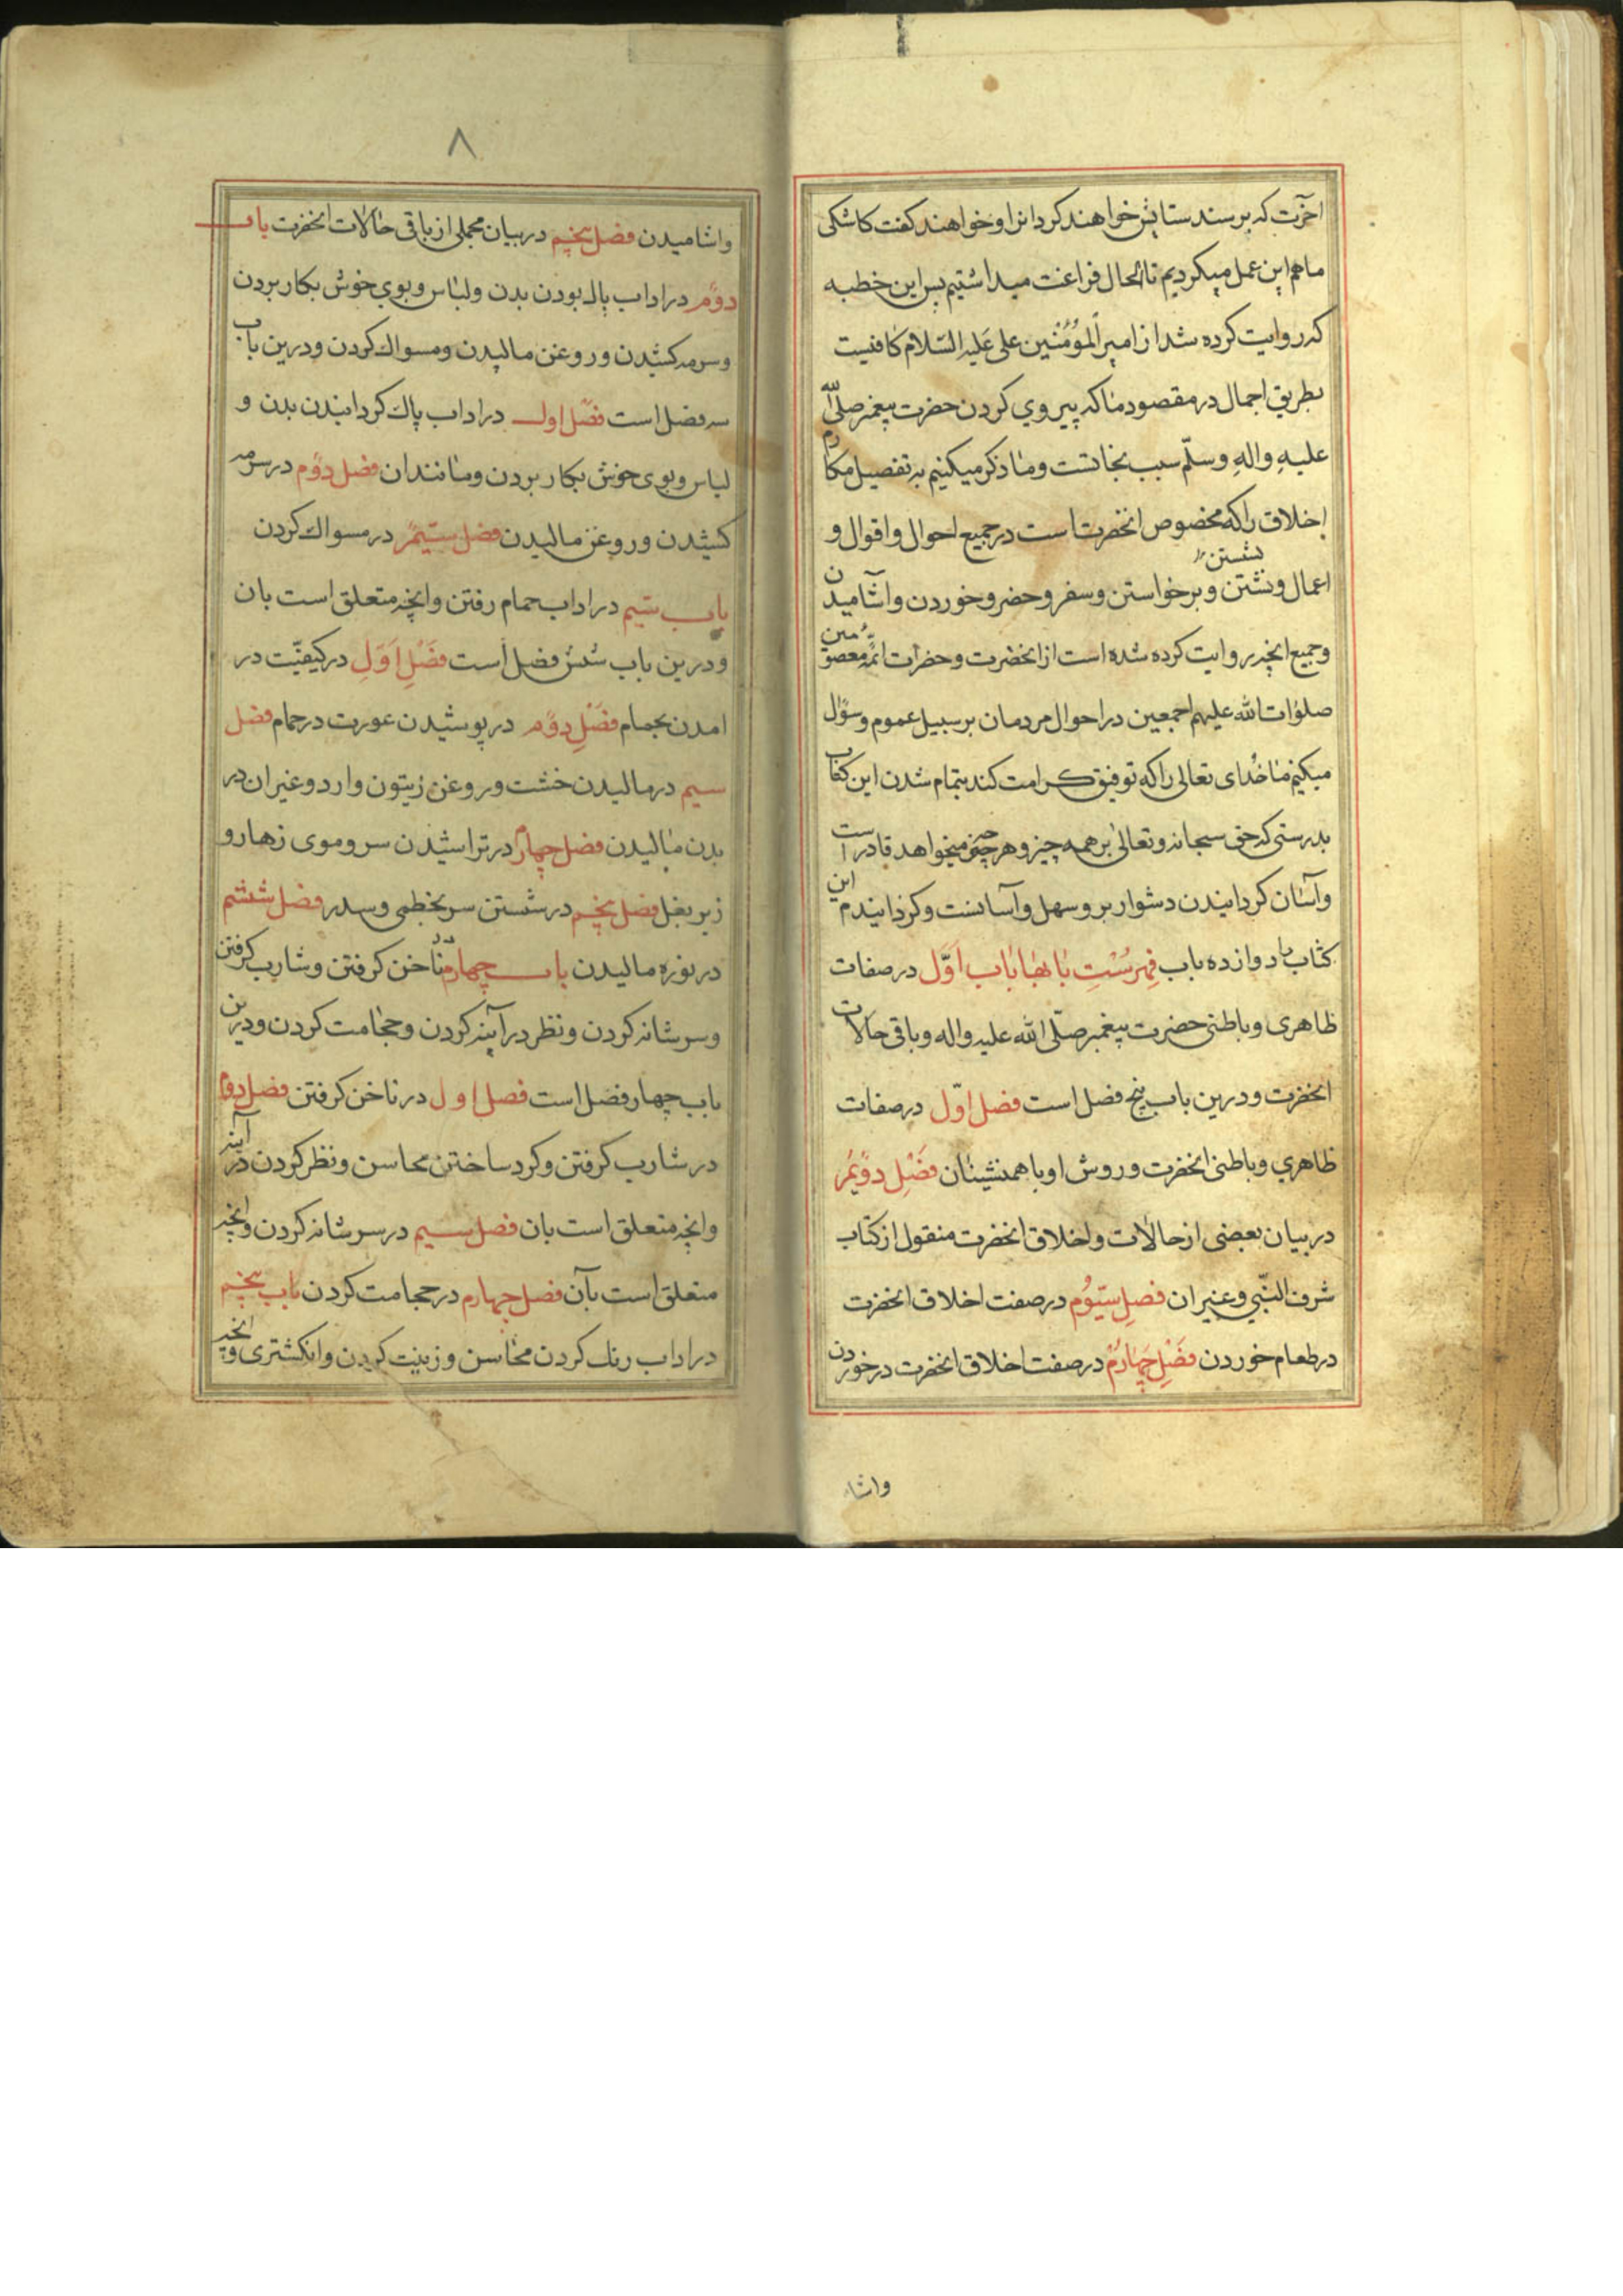 اخرت که برسند ستایش خواهند کرد انرا و خواهند کفت کاشکی
ما هم این عمل میکردیم تا الحال فراغت میداشتیم پس این خطبه
که روایت کرده شد از امیر المؤمنین علی علیه السلام کافیست
بطریق اجمال در مقصود ما که پیروی کردن حضرت پیغمبر صلی الله
علیه واله وسلّم سبب نجاتست وما ذکر میکنیم به تفصیل مکارم
اخلاق را که مخصوص انحضرتست در جمیع احوال و اقوال و
نشستن
اعمال و نشتن و برخواستن وسفر وحضر وخوردن واشامیدن
وجمیع انچه روایت کرده شده است از انحضرت وحضرات ائمه معصومین
صلوات الله علیهم اجمعین در احوال مردمان بر سبیل عموم وسؤال
میکنم ما خدای تعالی را که توفیق کرامت کند بتمام شدن این کتاب
بدرستی که حق سبحانه وتعالی بر همه چیز وهر چیزی میخواهد قادر است
واسان کردانیدن دشوار برو سهل و آسانست وکردانیدم این
کتاب را دوازده باب فهرست بابها باب اوّل در صفات
ظاهری وباطنی حضرت پیغمبر صلّی الله علیه واله وباقی حالات
انحضرت ودرین باب پنج فصل است فصل اوّل در صفات
ظاهری وباطنی انحضرت وروش او با همنشینان فصل دویم
در بیان بعضی از حالات واخلاق انحضرت منقول از کتاب
شرف النّبی وغیر ان فصل سیّوم در صفت اخلاق انحضرت
در طعام خوردن فصل چهارم در صفت اخلاق انحضرت در خوردن
واشا
۸
واشامیدن فصل پنجم در بیان مجملی از باقی حالات انحضرت باب
دوم در اداب پاک بودن بدن ولباس وبوی خوش بکار بردن
وسرمه کشیدن وروغن مالیدن ومسواک کردن ودرین باب
سه فصل است فصل اول در اداب پاک کردانیدن بدن و
لباس وبوی خوش بکار بردن ومانند ان فصل دوم در سرمه
کشیدن وروغن مالیدن فصل سیّم در مسواک کردن
باب سیم در اداب حمام رفتن وانچه متعلق است بان
ودرین باب شش فصل است فصل اوّل در کیفیّت در
امدن بحمام فصل دوم در پوشیدن عورت در حمام فصل
سیم در مالیدن خشت وروغن زیتون وارد وغیر ان در
بدن مالیدن فصل چهارم در تراشیدن سر وموی زهار و
زیر بغل فصل پنجم در شستن سر بخطمی وسدر فصل ششم
در نوره مالیدن باب چهارم در ناخن کرفتن وشارب کرفتن
وسر شانه کردن ونظر در آینه کردن وحجامت کردن ودرین
باب چهار فصل است فصل اول در ناخن کرفتن فصل دوم
در شارب کرفتن وکرد ساختن محاسن ونظر کردن در آینه
وانچه متعلق است بان فصل سیم در سر شانه کردن وانچه
متعلق است بآن فصل چهارم در حجامت کردن باب پنجم
در اداب رنک کردن محاسن وزینت کردن وانکشتری وانچه